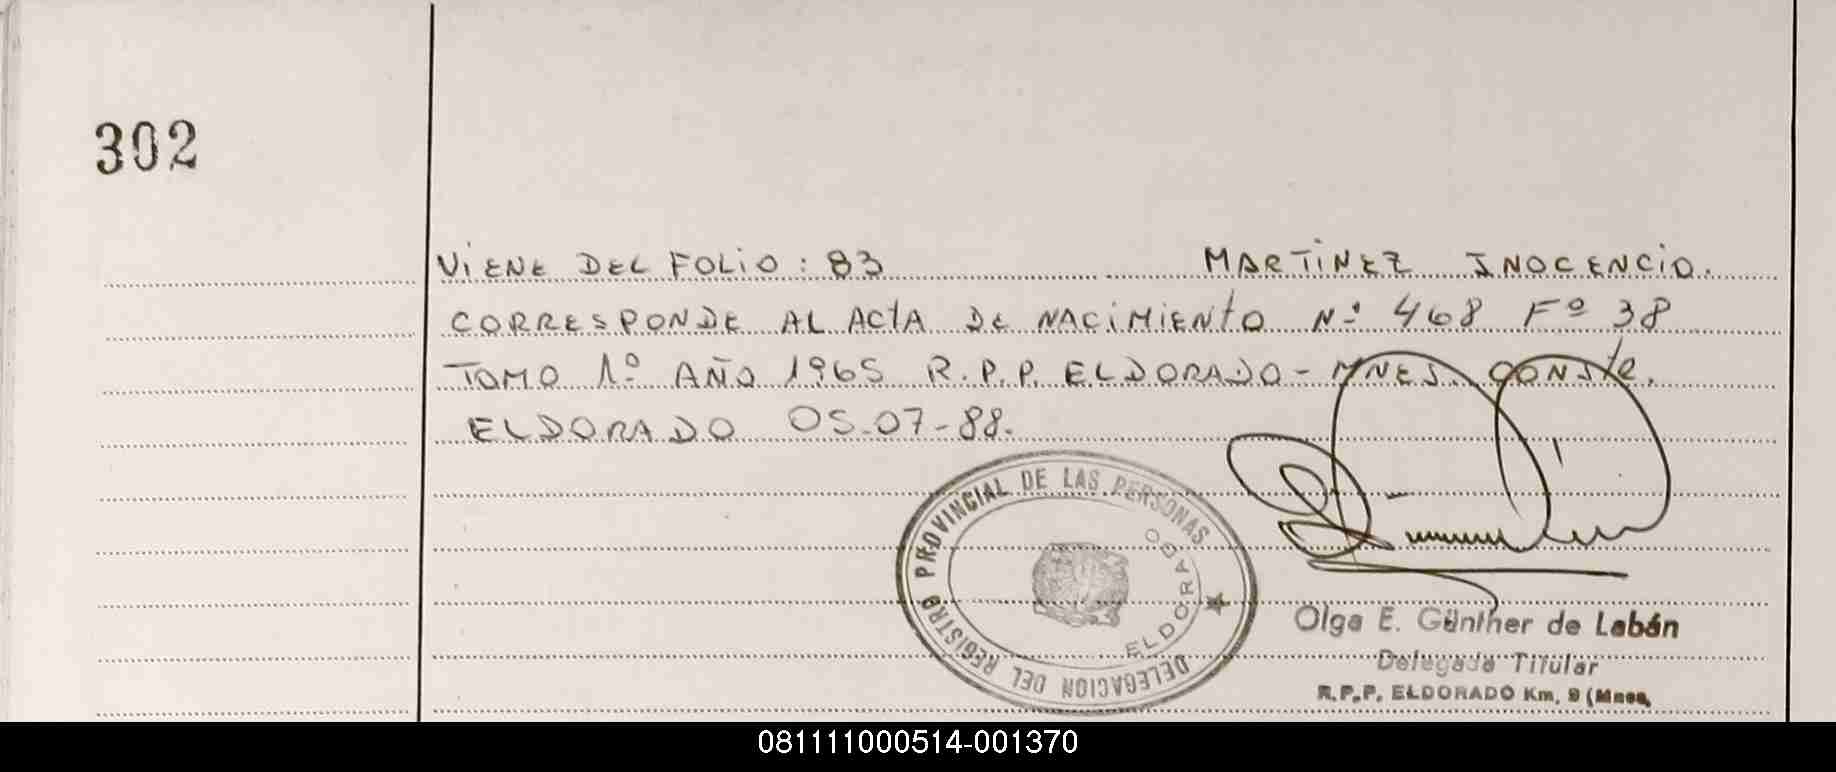 302
VIENE DEL FOLIO: 83 MARTINEZ INOCENCIO.
CORRESPONDE AL ACTA DE NACIMIENTO Nº 468 Fº 38
TOMO 1º AÑO 1965 R.P.P. ELDORADO - MNES. CONSTE.
ELDORADO 05-07-88.
DELEGACION DEL REGISTRO PROVINCIAL DE LAS PERSONAS
ELDORADO
Olga E. Günther de Labán
Delegada Titular
R.P.P. ELDORADO Km. 9 (Mnes.
081111000514-001370